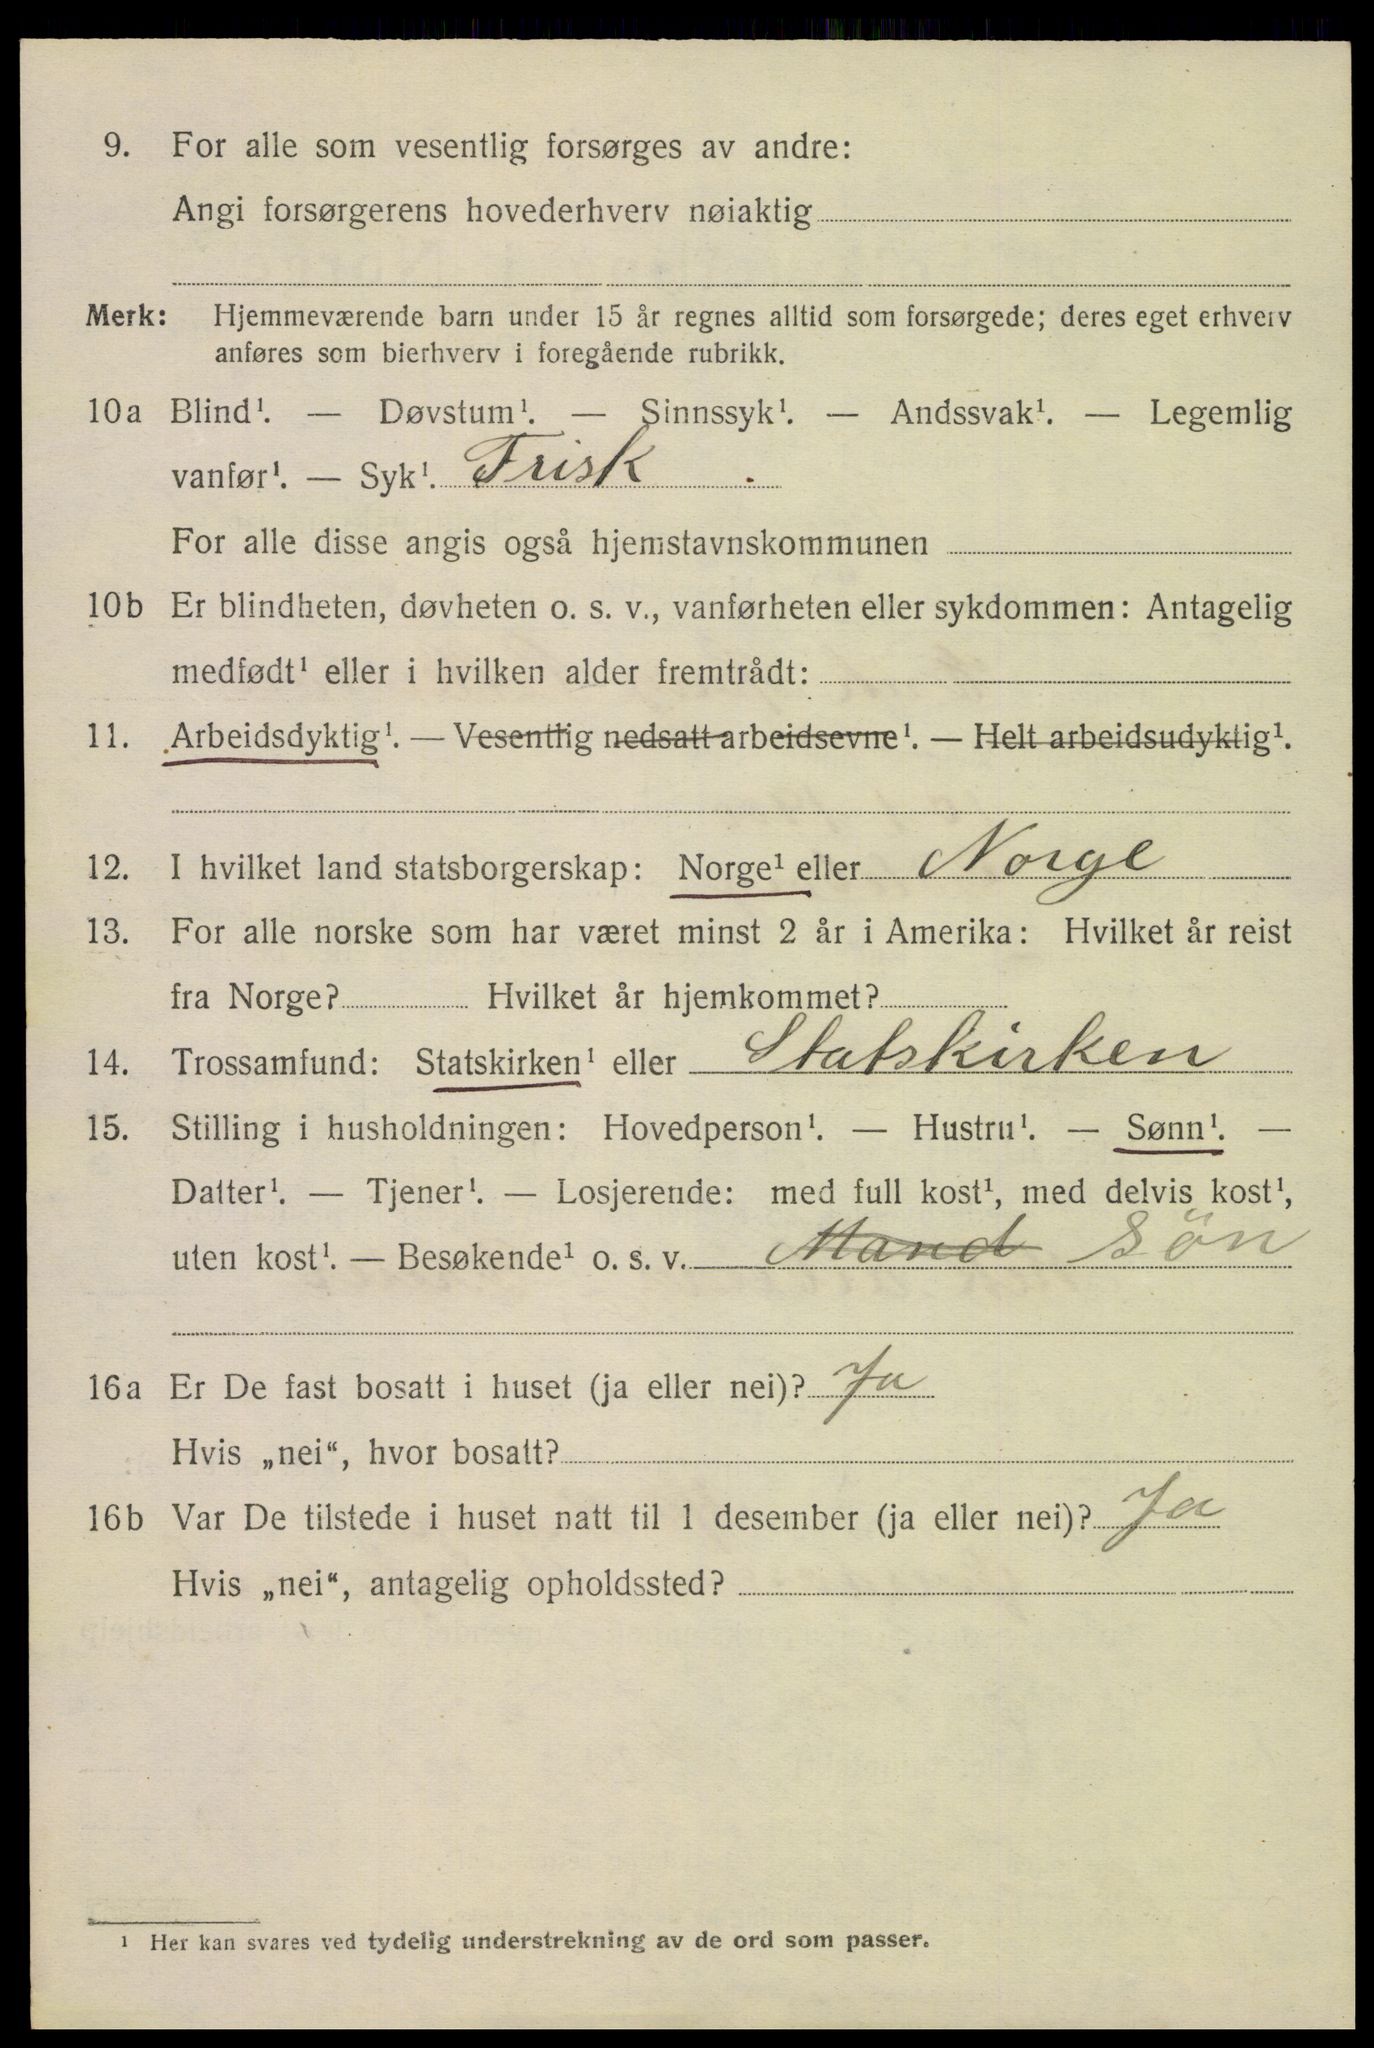 9. For alle som vesentlig forsørges av andre:
Angi forsørgerens hovederhverv nøiaktig
Merk: Hjemmeværende barn under 15 år regnes alltid som forsørgede; deres eget erhverv
anføres som bierhverv i foregående rubrikk.
10a Blind¹. — Døvstum¹. — Sinnssyk¹. — Andssvak¹. — Legemlig
vanfør¹. — Syk¹. Frisk
For alle disse angis også hjemstavnskommunen
10b Er blindheten, døvheten o. s. v., vanførheten eller sykdommen: Antagelig
medfødt¹ eller i hvilken alder fremtrådt:
11. Arbeidsdyktig¹. — Vesentlig nedsatt arbeidsevne¹. — Helt arbeidsudyktig¹.
12. I hvilket land statsborgerskap: Norge¹ eller Norge
13. For alle norske som har været minst 2 år i Amerika: Hvilket år reist
fra Norge? Hvilket år hjemkommet?
14. Trossamfund: Statskirken¹ eller Statskirken
15. Stilling i husholdningen: Hovedperson¹. — Hustru¹. — Sønn¹. —
Datter¹. — Tjener¹. — Losjerende: med full kost¹, med delvis kost¹,
uten kost¹. — Besøkende¹ o. s. v. Mand Sön
16a Er De fast bosatt i huset (ja eller nei)? Ja
Hvis „nei“, hvor bosatt?
16b Var De tilstede i huset natt til 1 desember (ja eller nei)? Ja
Hvis „nei“, antagelig opholdssted?
¹ Her kan svares ved tydelig understrekning av de ord som passer.